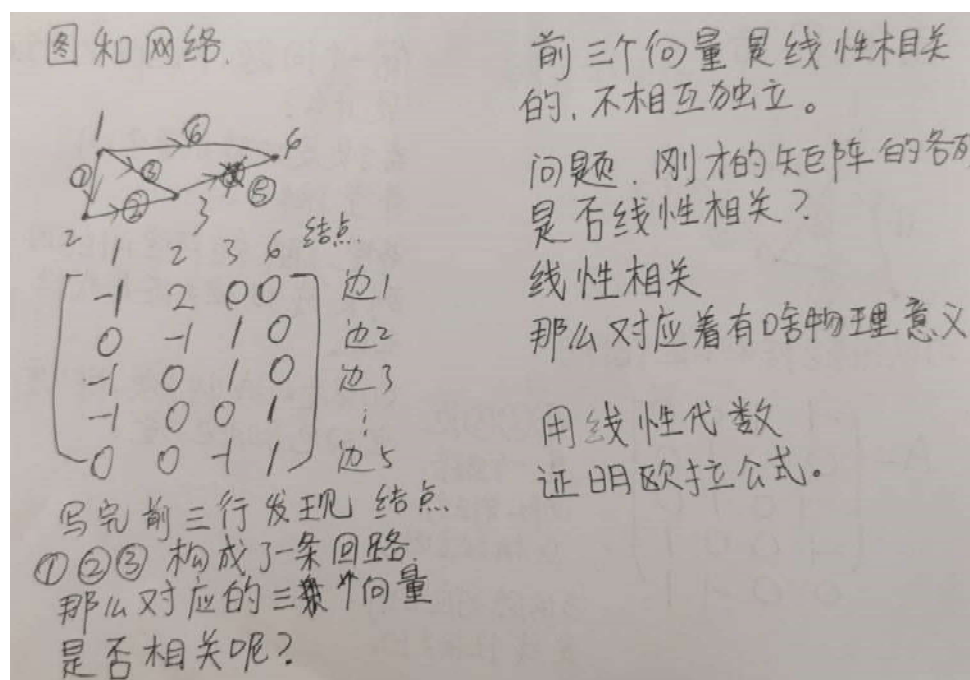 图和网络.
1 ⑥ 6
① ③
② ⑤
2 3
1 2 3 6 结点.
-1 2 0 0 边1
0 -1 1 0 边2
-1 0 1 0 边3
-1 0 0 1 ⋮
0 0 -1 1 边5
写完前三行发现 结点
①②③ 构成了一条回路.
那么对应的三个向量
是否相关呢?
前三个向量是线性相关
的, 不相互独立。
问题. 刚才的矩阵的各
是否线性相关?
线性相关
那么对应着有啥物理意义
用线性代数
证明欧拉公式。